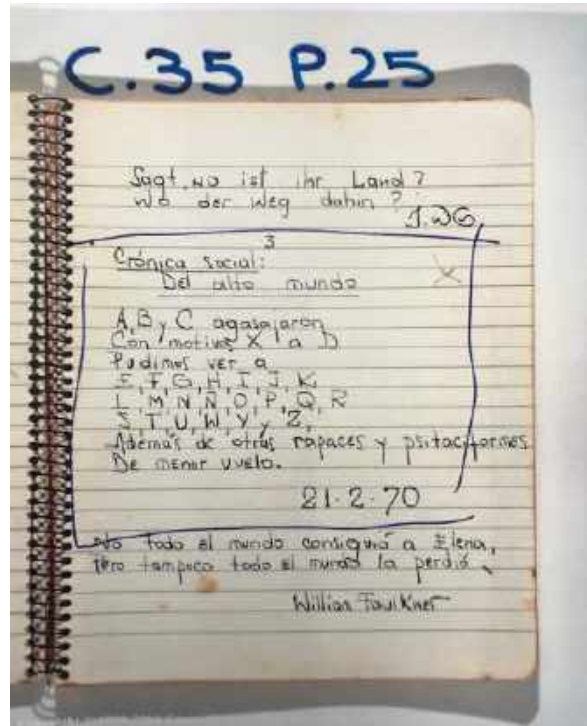 C.35 P.25
Sagt, wo ist ihr Land?
wo der Weg dahin?
J.WG.
3
Crónica social:
Del alto mundo
A, B y C agasajaron
Con motivo X a D
Pudimos ver a
E, F, G, H, I, J, K
L, M, N, Ñ, O, P, Q, R
S, T, U, W, Y y Z,
Además de otras rapaces y psitaciformes
De menor vuelo.
21.2.70
No todo el mundo consiguió a Elena,
Pero tampoco todo el mundo la perdió.
Willian Faulkner